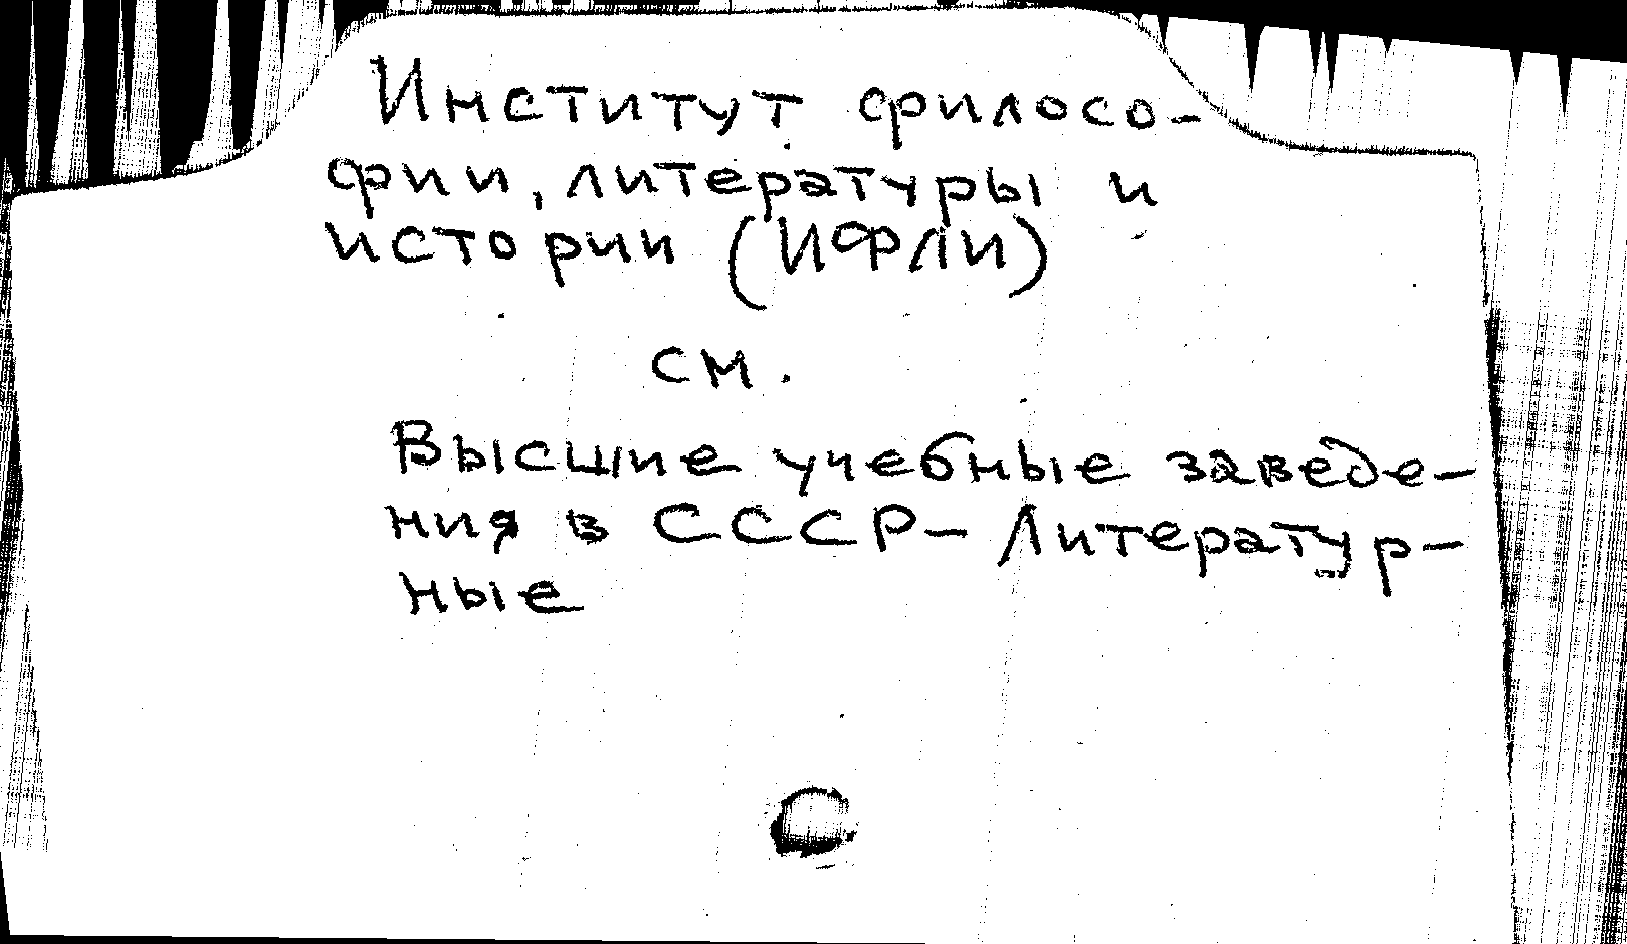 Институт филосо-
фии, литературы и
истории (ИФЛИ)
см.
Высшие учебные заведе-
ния в СССР - Литератур-
ные